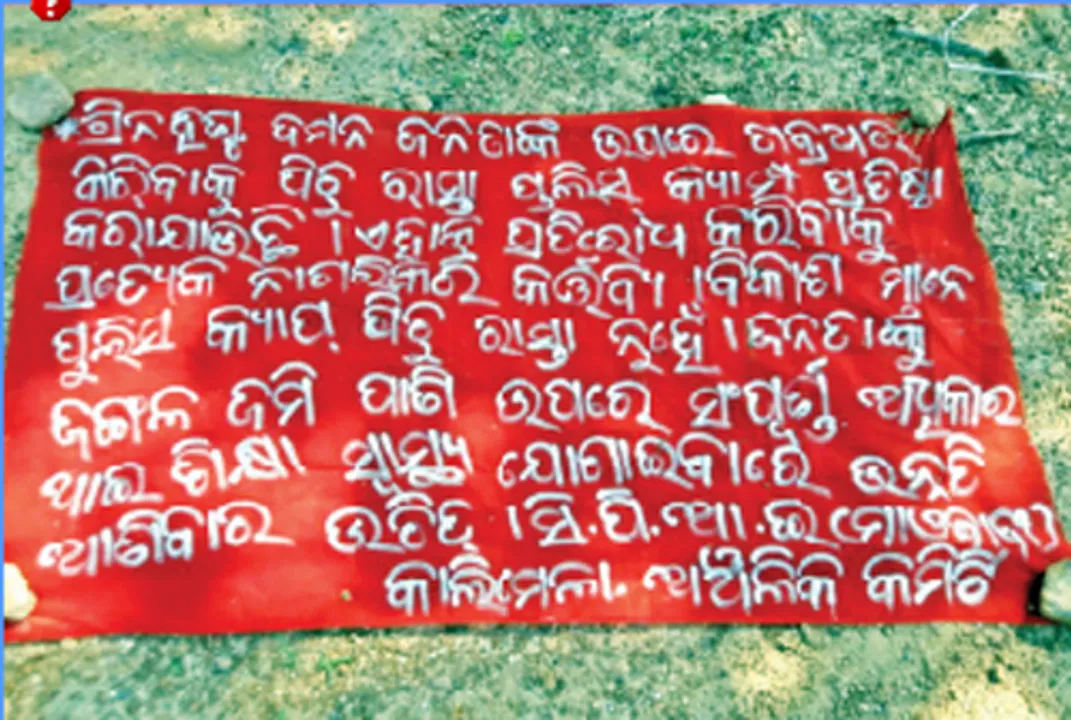 ଗ୍ରିନହଣ୍ଟ ଦମନ ଜନତାଙ୍କ ଉପରେ
କରିବାକୁ ପିଚୁ ରାସ୍ତା ପୁଲିସ କ୍ୟାମ୍ପ ପ୍ରତିଷ୍ଠା
କରାଯାଉଛି । ଏହାକୁ ପ୍ରତିରୋଧ କରିବାକୁ
ପ୍ରତ୍ୟେକ ନାଗରିକରି କର୍ତ୍ତବ୍ୟ । ବିକାଶ ମାନେ
ପୁଲିସ କ୍ୟାମ୍ପ ପିଚୁ ରାସ୍ତା ନୁହେଁ । ଜନତାଙ୍କୁ
ଜଙ୍ଗଲ ଜମି ପାଣି ଉପରେ ସଂପୂର୍ଣ୍ଣ ଅଧିକାର
ଥାଇ ଶିକ୍ଷା ସ୍ୱାସ୍ଥ୍ୟ ଯୋଗାଇବାରେ ଉନ୍ନତି
ଆଣିବାର ଉଚିତ୍ । ସି.ପି.ଆଇ ମାଓବାଦୀ
କାଲିମେଲା ଆଞ୍ଚଳିକ କମିଟି